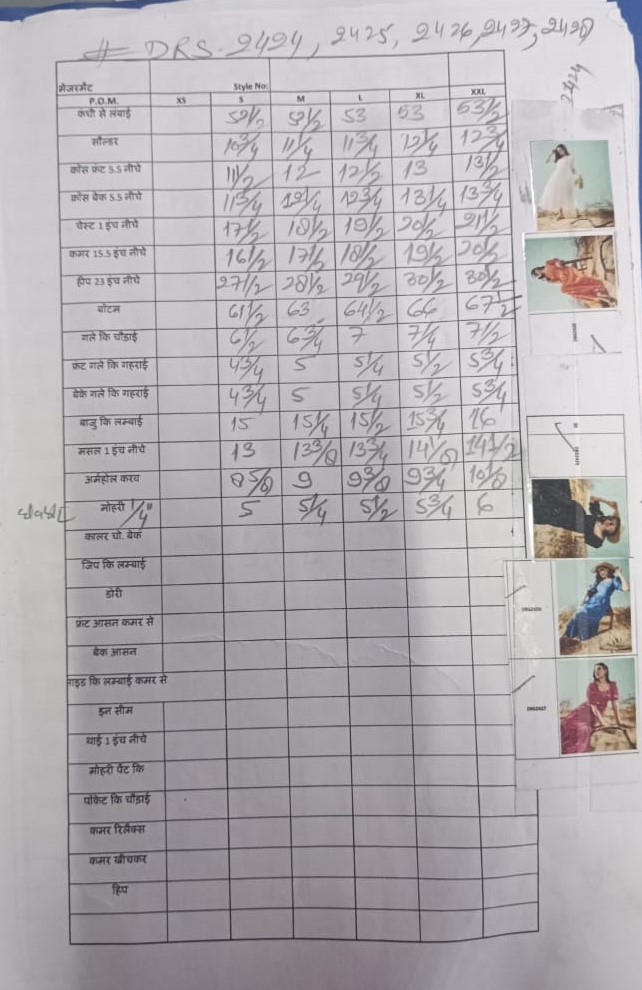 # DRS. 2424, 2425, 2426, 2427, 2428
2424
मेजरमेंट Style No:
P.O.M. XS S M L XL XXL
कंधी से लंबाई 52 1/2 52 1/2 53 53 53 1/2
सौल्डर 10 3/4 11 1/4 11 3/4 12 1/4 12 3/4
कोस फ्रंट 5.5 नीचे 11 1/2 12 12 1/2 13 13 1/2
कोस बेक 5.5 नीचे 11 3/4 12 1/4 12 3/4 13 1/4 13 3/4
चेस्ट 1 इंच नीचे 17 1/2 18 1/2 19 1/2 20 1/2 21 1/2
कमर 15.5 इंच नीचे 16 1/2 17 1/2 18 1/2 19 1/2 20 1/2
हीप 23 इंच नीचे 27 1/2 28 1/2 29 1/2 30 1/2 30 1/2
बॉटम 61 1/2 63 64 1/2 66 67 1/2
गले कि चौड़ाई 6 1/2 6 3/4 7 7 1/4 7 1/2
फ्रंट गले कि गहराई 4 3/4 5 5 1/4 5 1/2 5 3/4
बेके गले कि गहराई 4 3/4 5 5 1/4 5 1/2 5 3/4
बाजु कि लम्बाई 15 15 1/4 15 1/2 15 3/4 16
मसल 1 इंच नीचे 13 13 3/8 13 3/4 14 1/8 14 1/2
अर्महोल करव 8 5/8 9 9 3/8 9 3/4 10 1/8
मोहरी 1/4" 5 5 1/4 5 1/2 5 3/4 6
कालर चो. बेक
जिप कि लम्बाई
डोरी
फ्रंट आसन कमर से
बेक आसन
साइड कि लम्बाई कमर से
इन सीम
थाई 1 इंच नीचे
मोहरी पेंट कि
पोकेट कि चौड़ाई
कमर रिलैक्स
कमर खीचकर
हिप